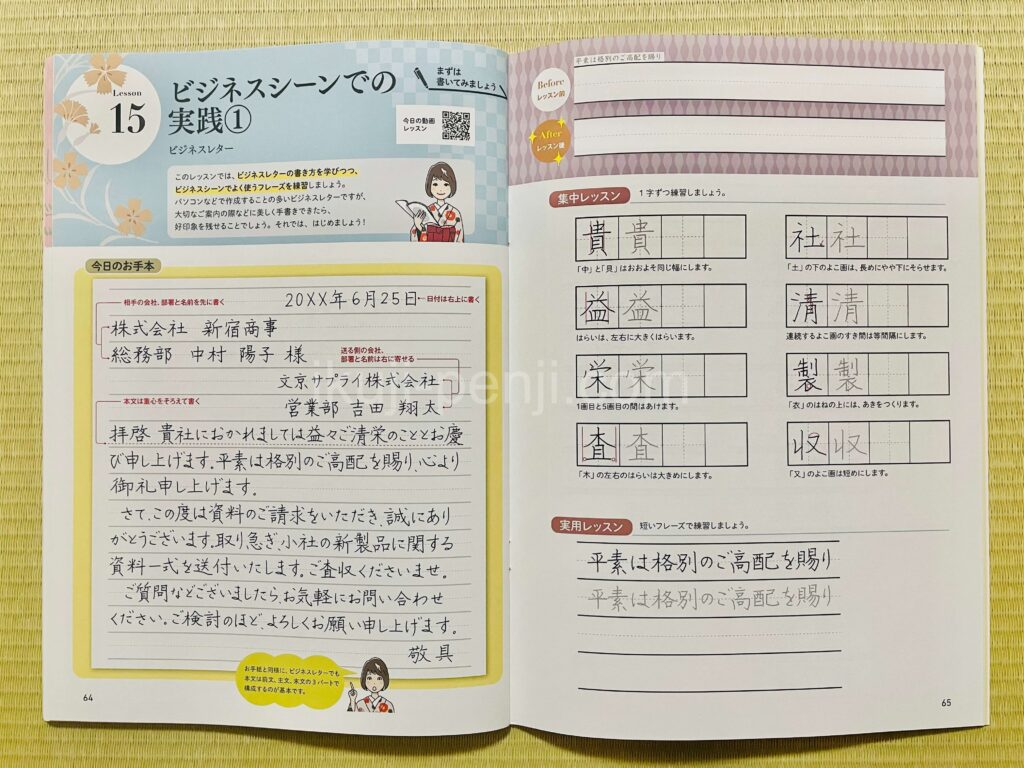 Lesson
15
ビジネスシーンでの
実践①
ビジネスレター
まずは
書いてみましょう
今日の動画
レッスン
このレッスンでは、ビジネスレターの書き方を学びつつ、
ビジネスシーンでよく使うフレーズを練習しましょう。
パソコンなどで作成することの多いビジネスレターですが、
大切なご案内の際などに美しく手書きできたら、
好印象を残せることでしょう。それでは、はじめましょう！
今日のお手本
相手の会社、部署と名前を先に書く
20XX年6月25日
日付は右上に書く
株式会社 新宿商事
総務部 中村 陽子 様
送る側の会社、
部署と名前は右に寄せる
文京サプライ株式会社
営業部 吉田 翔太
本文は重心をそろえて書く
拝啓 貴社におかれましては益々ご清栄のこととお慶
び申し上げます。平素は格別のご高配を賜り、心より
御礼申し上げます。
さて、この度は資料のご請求をいただき、誠にあり
がとうございます。取り急ぎ、小社の新製品に関する
資料一式を送付いたします。ご査収くださいませ。
ご質問などございましたら、お気軽にお問い合わせ
ください。ご検討のほど、よろしくお願い申し上げます。
敬具
お手紙と同様に、ビジネスレターでも
本文は前文、主文、末文の3パートで
構成するのが基本です。
64
平素は格別のご高配を賜り
Before
レッスン前
After
レッスン後
集中レッスン
1字ずつ練習しましょう。
貴 貴
「中」と「貝」はおおよそ同じ幅にします。
社 社
「土」の下のよこ画は、長めにやや下にそらせます。
益 益
はらいは、左右に大きくはらいます。
清 清
連続するよこ画のすき間は等間隔にします。
栄 栄
1画目と5画目の間はあけます。
製 製
「衣」のはねの上には、あきをつくります。
査 査
「木」の左右のはらいは大きめにします。
収 収
「又」のよこ画は短めにします。
実用レッスン
短いフレーズで練習しましょう。
平素は格別のご高配を賜り
平素は格別のご高配を賜り
65